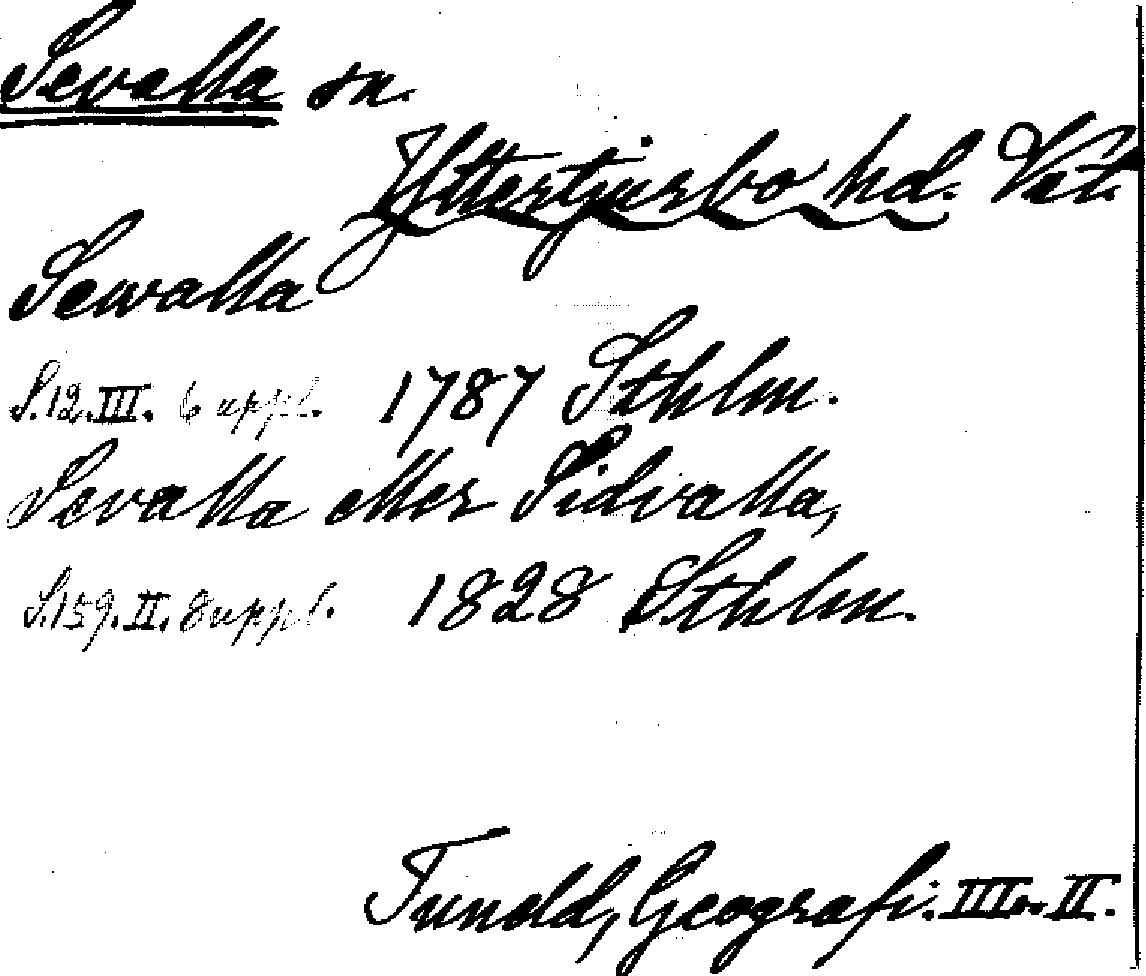 Sevalla sn.
Yttertjurbo hd. Vstm.
Sewalla
S.12.III. 6 uppl. 1787 Sthlm.
Sevalla eller Sidvalla,
S.159.II. 8 uppl. 1828 Sthlm.
Tuneld, Geografi. III o. II.